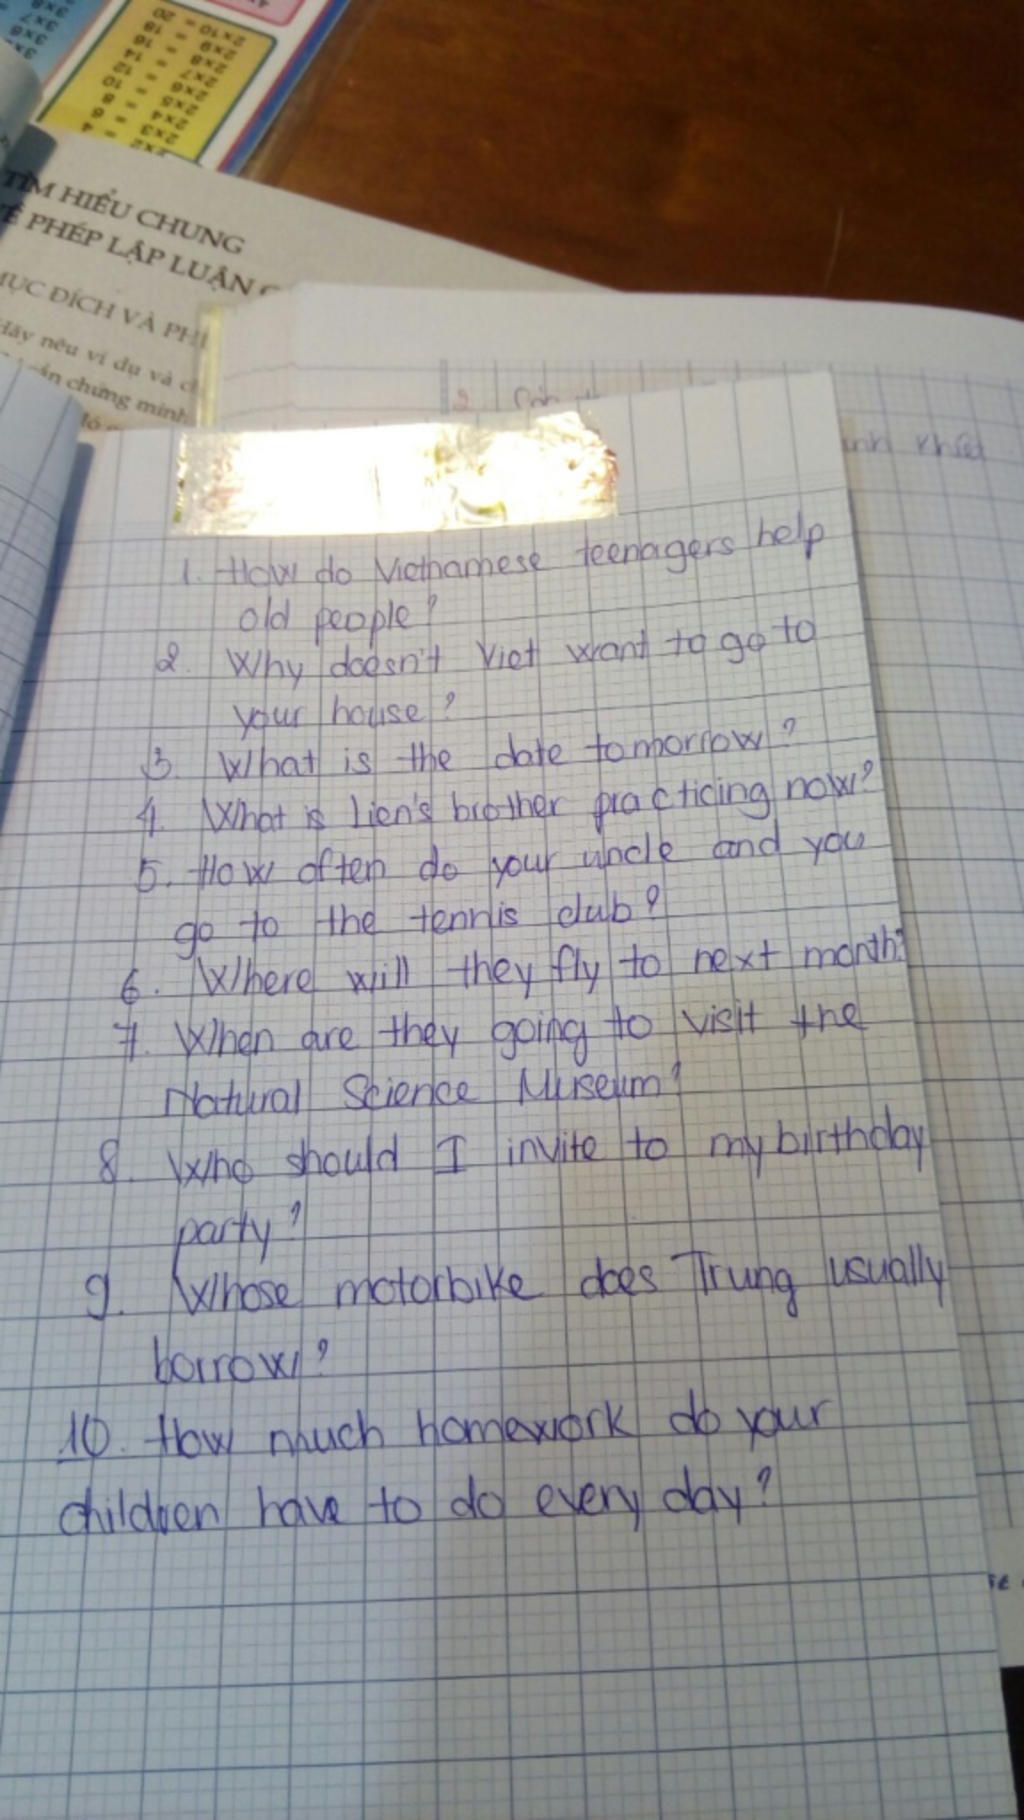 2x10 = 20
2x9 = 18
2x8 = 16
2x7 = 14
2x6 = 12
2x5 = 10
2x4 = 8
2x3 = 6
2x2 = 4
3x8
3x7
3x6
TÌM HIỂU CHUNG
VỀ PHÉP LẬP LUẬN
MỤC ĐÍCH VÀ
Hãy nêu ví dụ và
cần chứng minh
1. How do Vietnamese teenagers help
old people?
2. Why doesn't Viet want to go to
your house?
3. What is the date tomorrow?
4. What is Lien's brother practicing now?
5. How often do your uncle and you
go to the tennis club?
6. Where will they fly to next month?
7. When are they going to visit the
Natural Science Museum?
8. Who should I invite to my birthday
party?
9. Whose motorbike does Trung usually
borrow?
10. How much homework do your
children have to do every day?